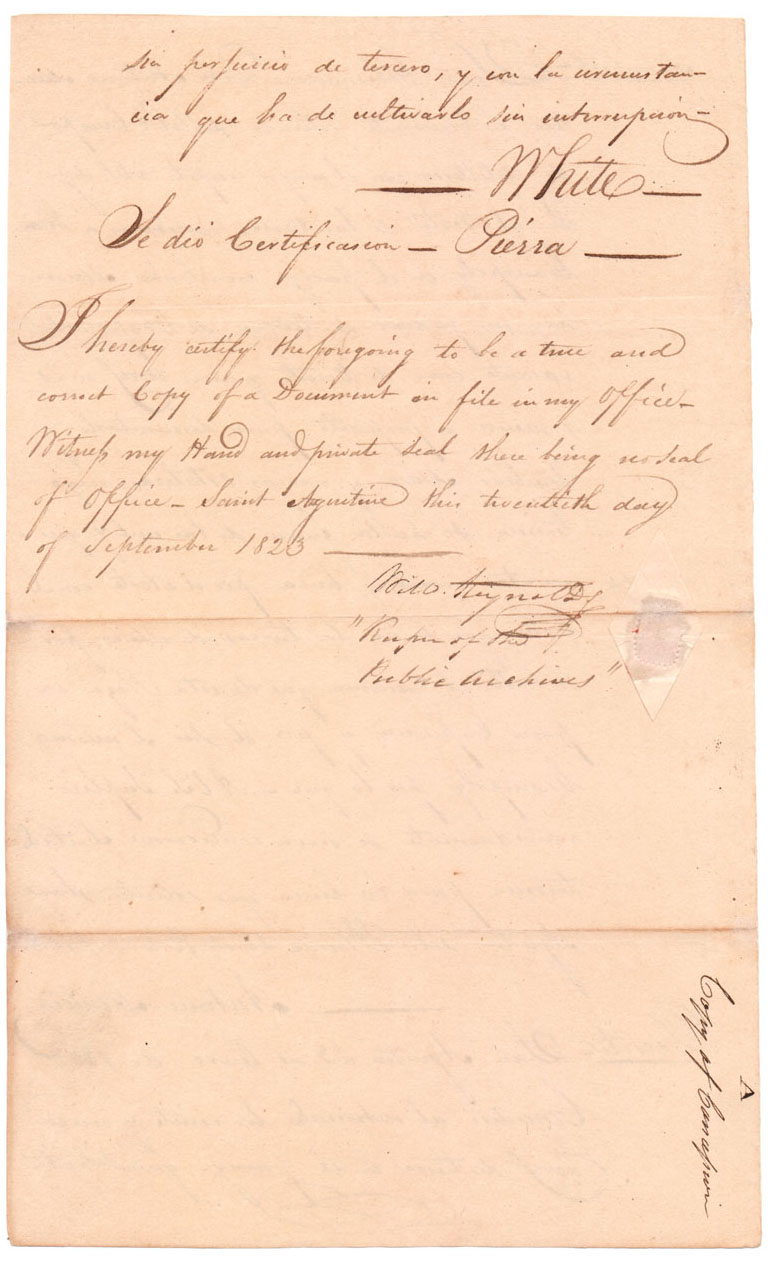 sin perjuicio de tercero, y con la circunstan-
cia que ha de cultivarlo sin interrupción-
— White —
Se dió Certificasión — Piérra —
I hereby certify the foregoing to be a true and
correct Copy of a Document on file in my Office-
Witness my Hand and private seal there being no seal
of Office - Saint Agustine this twentieth day
of September 1823 —
Wm. Reynolds
"Keeper of the
Public Archives"
A
Copy of Concession